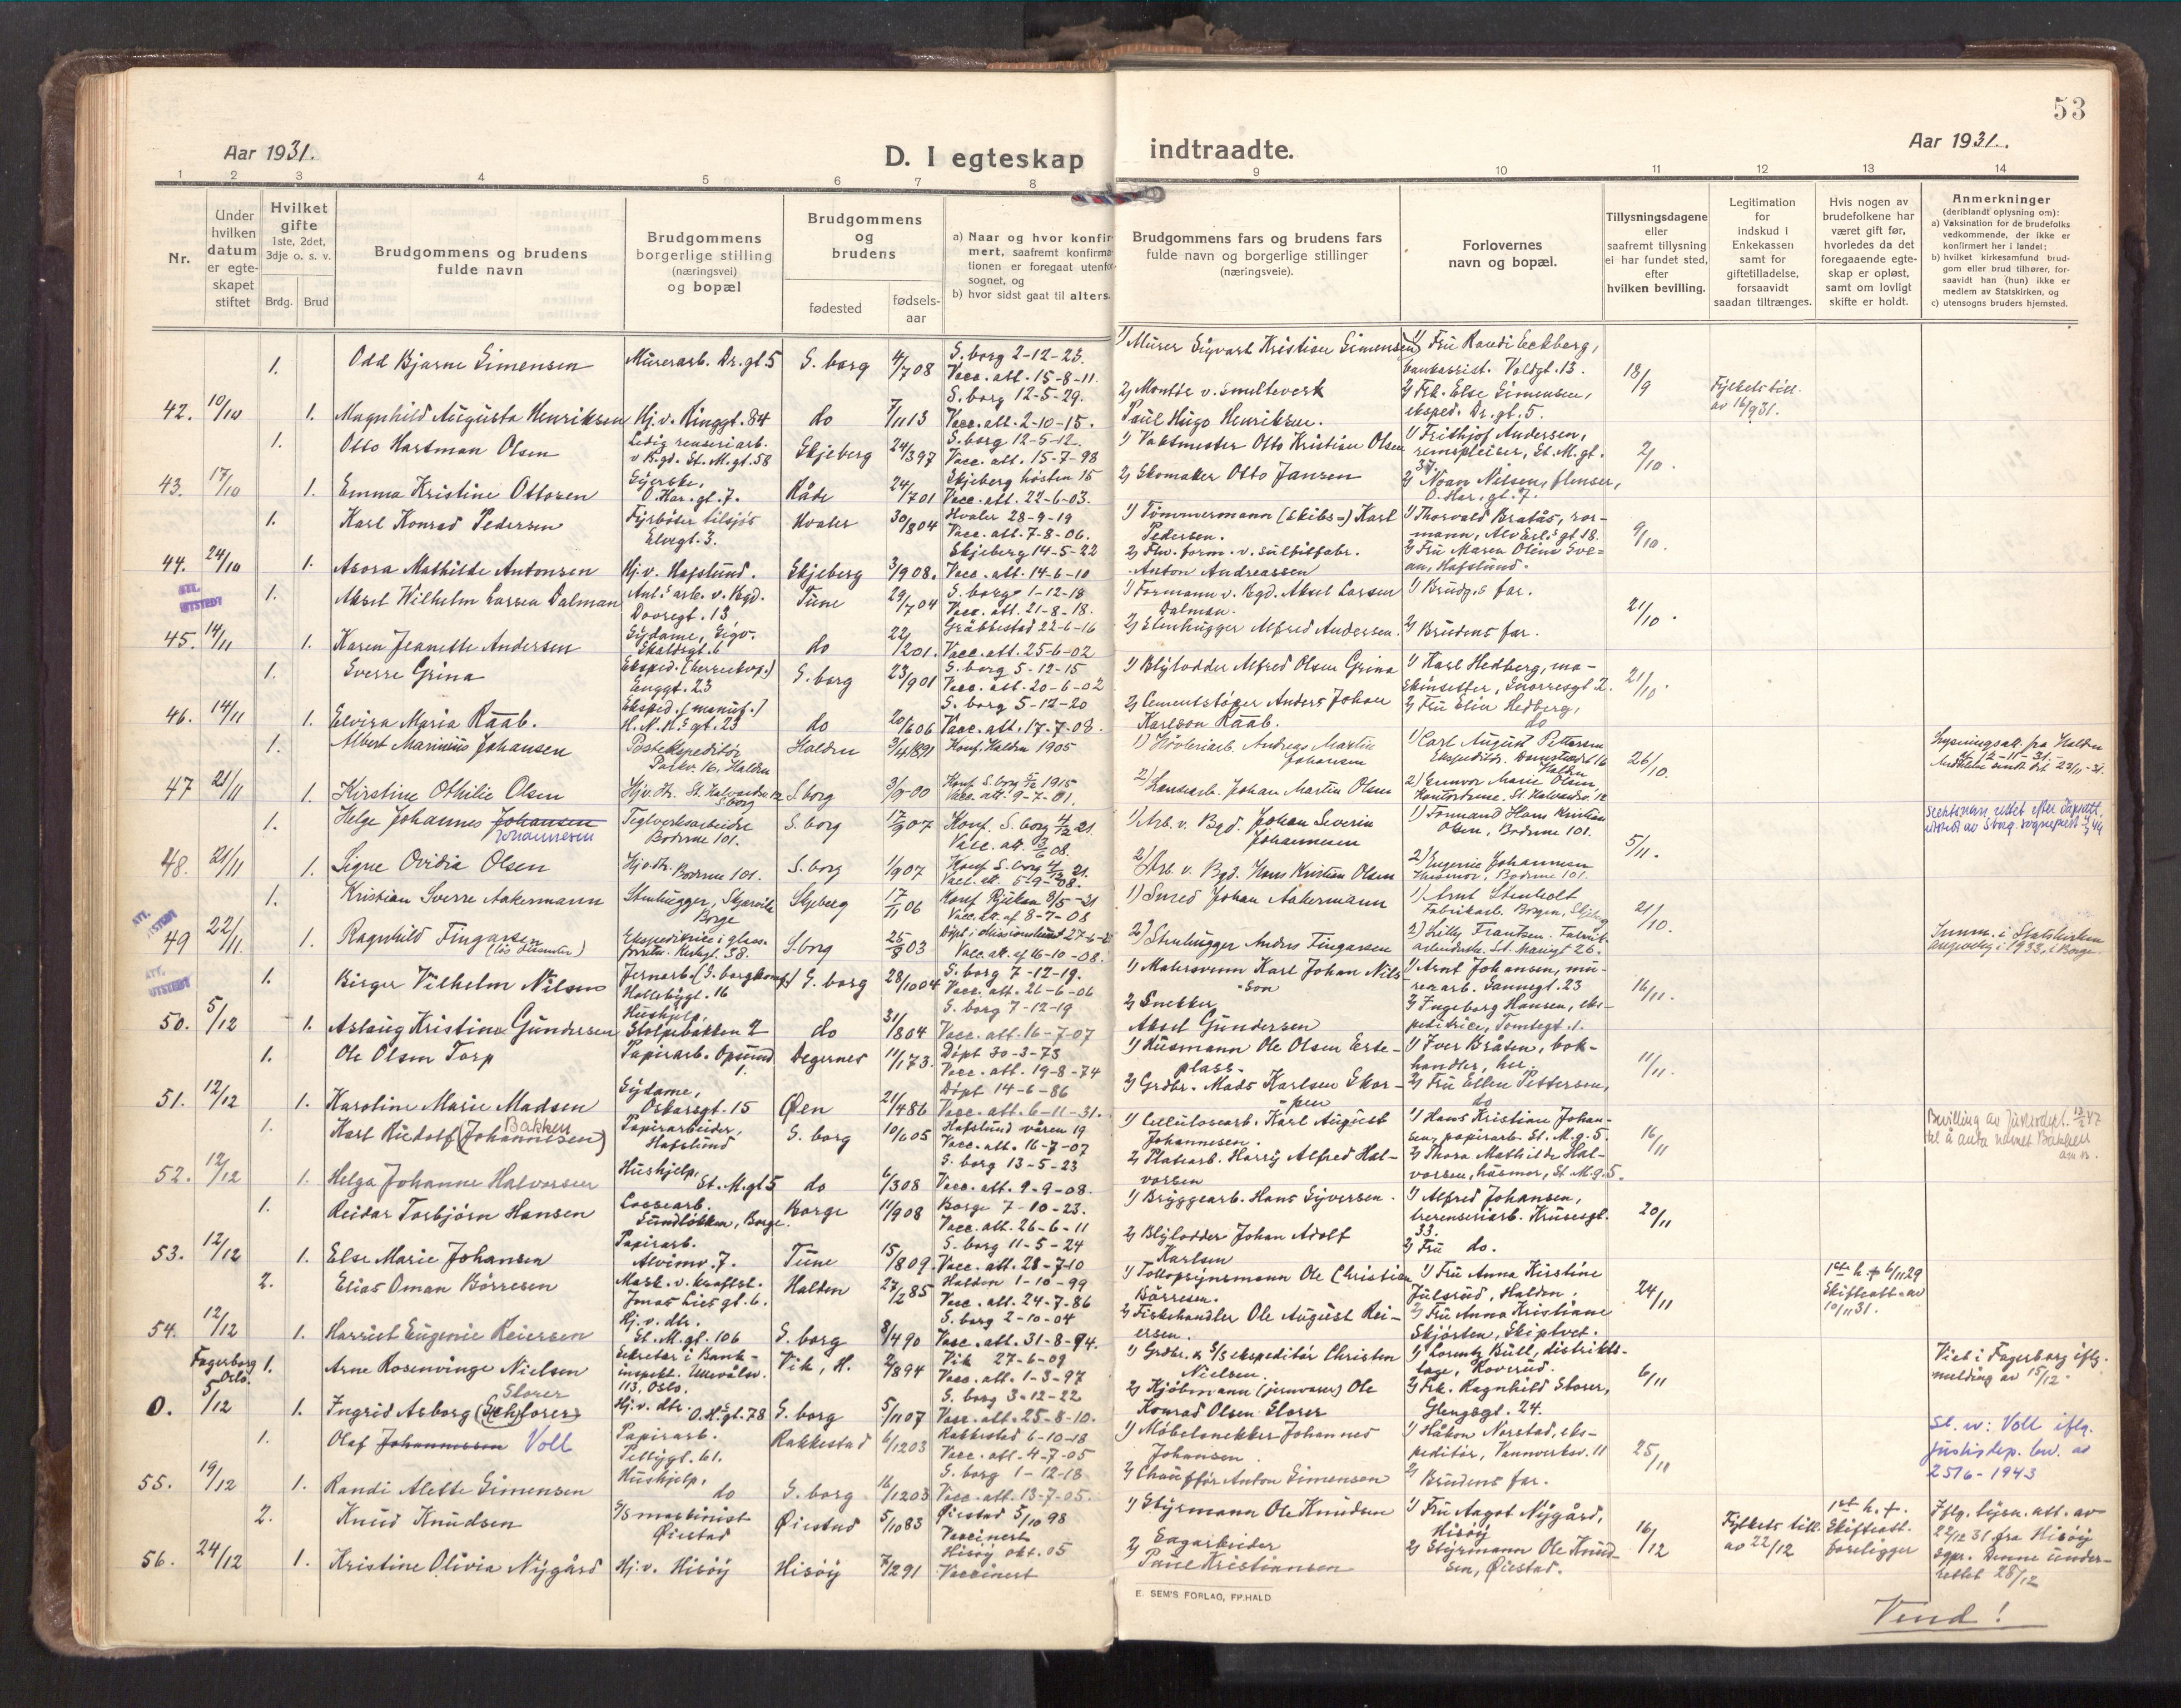 53
Aar 1931.
D. I egteskap
indtraadte.
Aar 1931.
1 2 3 4 5 6 7 8 9 10 11 12 13 14
Nr.
Under hvilken datum er egte-skapet stiftet
Hvilket gifte
1ste, 2det, 3dje o. s. v.
Brdg. Brud
Brudgommens og brudens fulde navn
Brudgommens borgerlige stilling (næringsvei) og bopæl
Brudgommens og brudens
fødested
fødsels-aar
a) Naar og hvor konfir-mert, saafremt konfirma-tionen er foregaat utenfor sognet, og
b) hvor sidst gaat til alters.
Brudgommens fars og brudens fars fulde navn og borgerlige stillinger (næringsveie).
Forlovernes navn og bopæl.
Tillysningsdagene eller saafremt tillysning ei har fundet sted, efter hvilken bevilling.
Legitimation for indskud i Enkekassen samt for giftetilladelse, forsaavidt saadan tiltrænges.
Hvis nogen av brudefolkene har været gift før, hvorledes da det foregaaende egte-skap er opløst, samt om lovligt skifte er holdt.
Anmerkninger
(deriblandt oplysning om):
a) Vaksination for de brudefolks vedkommende, der ikke er konfirmert her i landet;
b) hvilket kirkesamfund brud-gom eller brud tilhører, for-saavidt han (hun) ikke er medlem av Statskirken, og
c) utensogns bruders hjemsted.
1. Odd Bjarne Simensen Murerarb. Dr.gt 5 S.borg 4/7 08 S.borg 2-12-23. Vacc. att. 15-8-11. 1) Murer Sigvart Kristian Simensen 1) Fru Randi Eckberg, bankassist. Voldgt. 13. 18/9 Fylkets till. av 16/9 31.
42. 10/10 1. Magnhild Augusta Henriksen Hj. v. Ringgt. 84 do 7/11 13 S.borg 12-5-29. Vacc. att. 2-10-15. 2) Montør v. Smelteverk Paul Hugo Henriksen. 2) Frk. Else Simensen, eksped. Dr.gt. 5.
1. Otto Hartman Olsen Ledig renseriarb. v. Bgd. St. M.gt. 58 Skjeberg 24/3 97 S.borg 12-5-12. Vacc. att. 15-7-98 1) Vaktmester Otto Kristian Olsen 1) Frithjof Andersen, remspleiser, St. M.gt. 37. 2/10.
43. 17/10 1. Emma Kristine Ottosen Syerske, O. Har. gt. 7. Råde 24/7 01 Skjeberg høsten 15 Vacc. att. 22-6-03. 2) Skomaker Otto Jansen 2) Noan Nilsen, flenser, O. Har. gt. 7.
1. Karl Konrad Pedersen Fyrbøter tilsjøs Elvegt. 3. Hvaler 30/8 04 Hvaler 28-9-19 Vacc. att. 7-8-06. 1) Tømmermann (skibs-) Karl Pedersen. 1) Thorvald Bratås, rormann, Alv Erl.s gt 18. 9/10.
44. 24/10 1. Asora Mathilde Antonsen Hj. v. Hafslund. Skjeberg 3/9 08. Skjeberg 14-5-22 Vacc. att. 14-6-10 2) Fhv. form. v. sulfitfabr. Anton Andreassen 2) Fru Maren Oline Svean, Hafslund.
ATT. UTSTEDT
1. Aksel Wilhelm Larsen Dalman Anl.s arb. v. Bgd. Dovregt. 13 Tune 29/7 04 S.borg 1-12-18 Vacc. att. 21-8-18. 1) Formann v. Bgd. Aksel Larsen Dalman. 1) Brudg.s far. 21/10.
45. 14/11 1. Karen Jeanette Andersen Sydame, Sigv. Skaldsgt. 6 do 22/1 201. Gräbbestad 22-6-16 Vacc. att. 25-6-02 2) Stenhugger Alfred Andersen. 2) Brudens far.
1. Sverre Grina Eksped. (herreekvp.) Enggt. 23 S.borg 23/9 01 S.borg 5-12-15 Vacc. att. 20-6-02 1) Blylodder Alfred Olsen Grina 1) Karl Hedberg, maskinsetter, Snorresgt 2. 21/10.
46. 14/11 1. Elvira Maria Raab. Eksped. (manuf.) H. N. H.s gt. 23 do 20/6 06 S.borg 5-12-20 Vacc. att. 17-7-08. 2) Cementstøper Anders Johan Karlson Raab. 2) Fru Elin Hedberg, do
1. Albert Marinius Johansen Postekspeditør Parkv. 16, Halden Halden 1891 Konf. Halden 1905 1) Høvleriarb. Andreas Martin Johansen 1) Carl August Pettersen Ekspeditør. 16 Halden 26/10. Lysningsatt. fra Halden 12-11-31. Meddelse sendt dit 23/11-31.
47 21/11 1. Kirstine Othilie Olsen Hjv. dtr. St. Halvardsv. 12 S.borg S.borg 3/9-00 Konf. S.borg 1915 Vacc. att. 9-7-01. 2) Lossearb. Johan Martin Olsen 2) Gunvor Marie Olsen, Kontordame, St. Halvardsv. 12
1. Helge Johannes Johansen Johannesen Teglverksarbeider Bodrme 101. S.borg 17/9 07 Konf. S.borg 4/12 21. Vacc. att. 13/6 08. 1) Arb. v. Bgd. Johan Severin Johannesen 1) Formand Hans Kristian Olsen, Bodrme 101. 5/11. Slektsnavn rettet efter dåpsatt. utstedt av Sborg. sogneprest
48. 21/11 1. Signe Ovidia Olsen Hjv. dtr. Bodrme 101. S.borg 1/9 07 Konf. S.borg 4/12 21. Vacc. att. 5-9-08. 2) Arb. v. Bgd. Hans Kristian Olsen 2) Eugenie Johannesen Husmor, Bodrme 101.
ATT. UTSTEDT
1. Kristian Sverre Aakermann Stenhugger, Skjærvik Borge Skjeberg 17/11 06 Konf. Rjukan 8/5-21 Vacc. att. af 8-7-08 1) Smed Johan Aakermann 1) Arnt Stenholt Fabrikarb. Borgen, Skjeberg 21/10.
49 22/11. 1. Ragnhild Fingarsen (løs dissenter) Ekspeditrice i glassforretn. Kirkegt. 38. S.borg 25/8 03 Døpt i Missionshuset 27- Vacc. att. af 16-10-08. 2) Stenhugger Anders Fingarsen 2) Lilly Frantsen. Fabrikarbeiderske St. Mariegt 26. Innm. i Statskirken i 1933, i Borge.
ATT. UTSTEDT
1. Birger Vilhelm Nilsen Jernarb. (S.borg komp.) Hollebygt. 16 S.borg 28/10 04 S.borg 7-12-19. Vacc. att. 26-6-06 1) Malersvenn Karl Johan Nilsson 1) Arnt Johansen, murerarb. Sannegt. 23 16/11.
50. 5/12 1. Aslaug Kristine Gundersen Hushjelp, Stolpebakken 2 do 31/8 04 S.borg 7-12-19 Vacc. att. 16-7-07 2) Snekker Aksel Gundersen 2) Ingeborg Hansen, ekspeditrice, Tomtegt. 1.
1. Ole Olsen Torp Papirarb. Opsund 1. Degernes 11/1 73. Døpt 30-3-73 Vacc. att. 19-8-74 1) Husmann Ole Olsen Torpeplass. 1) Iver Bråten, bokhandler, her. 11/11.
51. 12/12 1. Karoline Marie Madsen Sydame, Oskarsgt. 15 Øen 21/4 86 Døpt 14-6-86 Vacc. att. 6-11-31. 2) Grdbr. Mads Karlsen Skorpen 2) Fru Ellen Pettersen, do
1. Karl Rudolf (Johannesen) Bakken Papirarbeider, Hafslund S.borg 10/6 05 Hafslund våren 19 Vacc. att. 16-7-07 1) Cellulosearb. Karl August Johannesen. 1) Hans Kristian Johansen, papirarb. St. M.g. 5. 16/11 Bevilling av Justisdept. til å anta navnet Bakken
52. 12/12 1. Helga Johanne Halvorsen Hushjelp. St. M.gt 5 do 6/3 08 S.borg 13-5-23 Vacc. att. 9-9-08. 2) Platearb. Harry Alfred Halvorsen 2) Thora Mathilde Halvorsen, husmor, St. M.g. 5.
1. Reidar Torbjørn Hansen Lossearb. Sundløkken, Borge. Borge 11/9 08 Borge 7-10-23. Vacc. att. 26-6-11 1) Bryggearb. Hans Syversen. 1) Alfred Johansen, renseriarb. Krusesgt. 33. 20/11
53. 12/12 1. Else Marie Johansen Papirarb. Alvimv. 7. Tune 15/8 09. S.borg 11-5-24 Vacc. att. 28-7-10 2) Blylodder Johan Adolf Karlsen 2) Fru do.
2. Elias Oman Børresen Mask. v. kraftst. Jonas Lies gt. 6. Halden 27/2 85 Halden 1-10-99 Vacc. att. 24-7-86 1) Tollopsynsmann Ole Christian Børresen. 1) Fru Anna Kirstine Julsrud, Halden. 24/11 1ste h. † 6/11 29 Skifteatt. av 10/11 31.
54. 12/12 1. Harriet Eugenie Reiersen Hj. v. dtr. St. M. gt. 106 S.borg 8/4 90 S.borg 2-10-04 Vacc. att. 31-8-94. 2) Fiskehandler Ole August Reiersen. 2) Fru Anna Kristiane Skjørten, Skiptvet.
Fagerborg Oslo. 1. Arne Rosenvinge Nielsen Sekretær i Bankinspekt. Ullevålsv. 113, Oslo. Vik, H. 2/8 94 Vik 27-6-09 Vacc. att. 1-3-97 1) Grdbr. & D/S ekspeditør Christen Nielsen 1) Lorentz Bull, distriktslæge, Roverud. 6/11 Viet i Fagerborg iflg. melding av 15/12.
0. 5/12 1. Ingrid Asborg (Schlorer) Slorer Hj. v. dtr. O.H.s gt. 78 S.borg 5/11 07 S.borg 3-12-22 Vacc. att. 25-8-10. 2) Kjøbmann (jernvarer) Ole Konrad Olsen Slorer 2) Frk. Ragnhild Slorer, Glengsgt. 24.
1. Olaf Johannessen Voll Papirarb. Peltygt. 61. Rakkestad 6/12 03 Rakkestad 6-10-18 Vacc. att. 4-7-05 1) Møbelsnekker Johannes Johansen 1) Håkon Norstad, ekspeditør, Vannverksv. 11 25/11 Sl. nv: Voll iflg. justisdep. bev. av 25/6-1943
55. 19/12 1. Randi Alette Simensen Hushjelp, do S.borg 16/12 03 S.borg 1-12-18 Vacc. att. 13-7-05. 2) Chauffør Anton Simensen 2) Brudens far.
2. Knud Knudsen D/S maskinist Øiestad Øiestad 5/10 83 Øiestad 5/10 98 Vaccinert 1) Styrmann Ole Knudsen 1) Fru Aagot Nygård, Hisøy 16/12 Fylkets till. av 22/12 1st h. †. Skifteatt. foreligger Iflg. lysn. att. av 22/12 31 fra Hisøy sgpr. Denne underrettet 28/12
56. 24/12 1. Kristine Olivia Nygård Hj. v. Hisøy Hisøy 7/2 91 Hisøy okt. 05 Vaccinert 2) Sagarbeider Paul Kristiansen 2) Styrmann Ole Knudsen, Øiestad.
E. SEM'S FORLAG, FR.HALD
Vend!